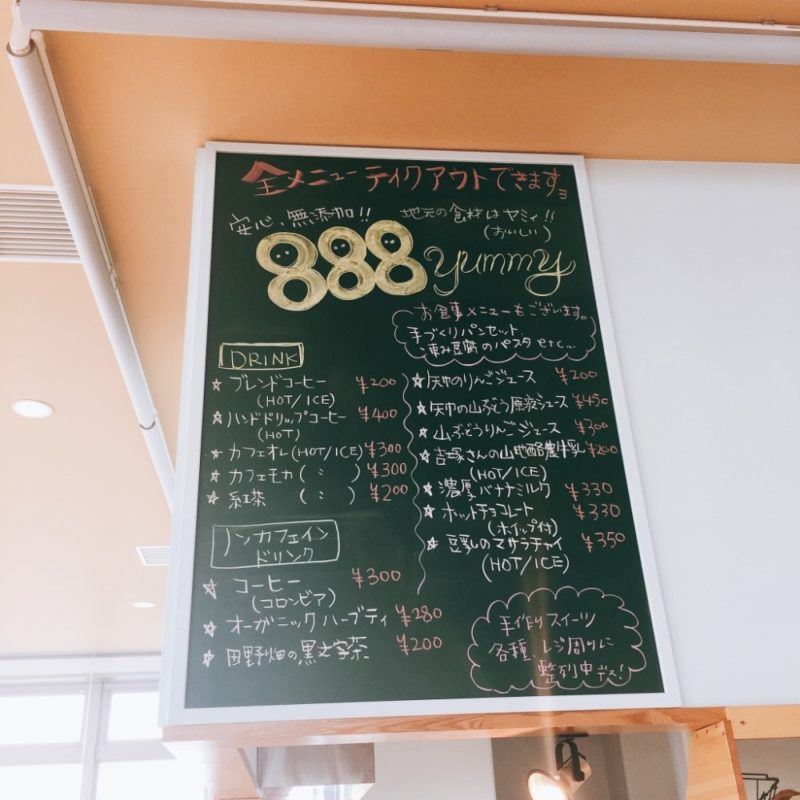 全メニューテイクアウトできますョ
安心、無添加!!
地元の食材はヤミィ!!
(おいしい)
888 yummy
お食事メニューもございます。
手づくりパンセット、
凍み豆腐のパスタ etc...
DRINK
☆ ブレンドコーヒー ¥200
(HOT/ICE)
☆ ハンドドリップコーヒー ¥400
(HOT)
☆ カフェオレ(HOT/ICE) ¥300
☆ カフェモカ(〃) ¥300
☆ 紅茶(〃) ¥200
ノンカフェイン
ドリンク
☆ コーヒー ¥300
(コロンビア)
☆ オーガニックハーブティ ¥280
☆ 田野畑の黒文字茶 ¥200
☆ 矢巾のりんごジュース ¥200
☆ 矢巾の山ぶどう原液ジュース ¥450
☆ 山ぶどうりんごジュース ¥300
☆ 吉塚さんの山地酪農牛乳 ¥200
(HOT/ICE)
☆ 濃厚バナナミルク ¥330
☆ ホットチョコレート ¥330
(ホイップ付)
☆ 豆乳のマサラチャイ ¥350
(HOT/ICE)
手作りスイーツ
各種、レジ周りに
整列中デス!